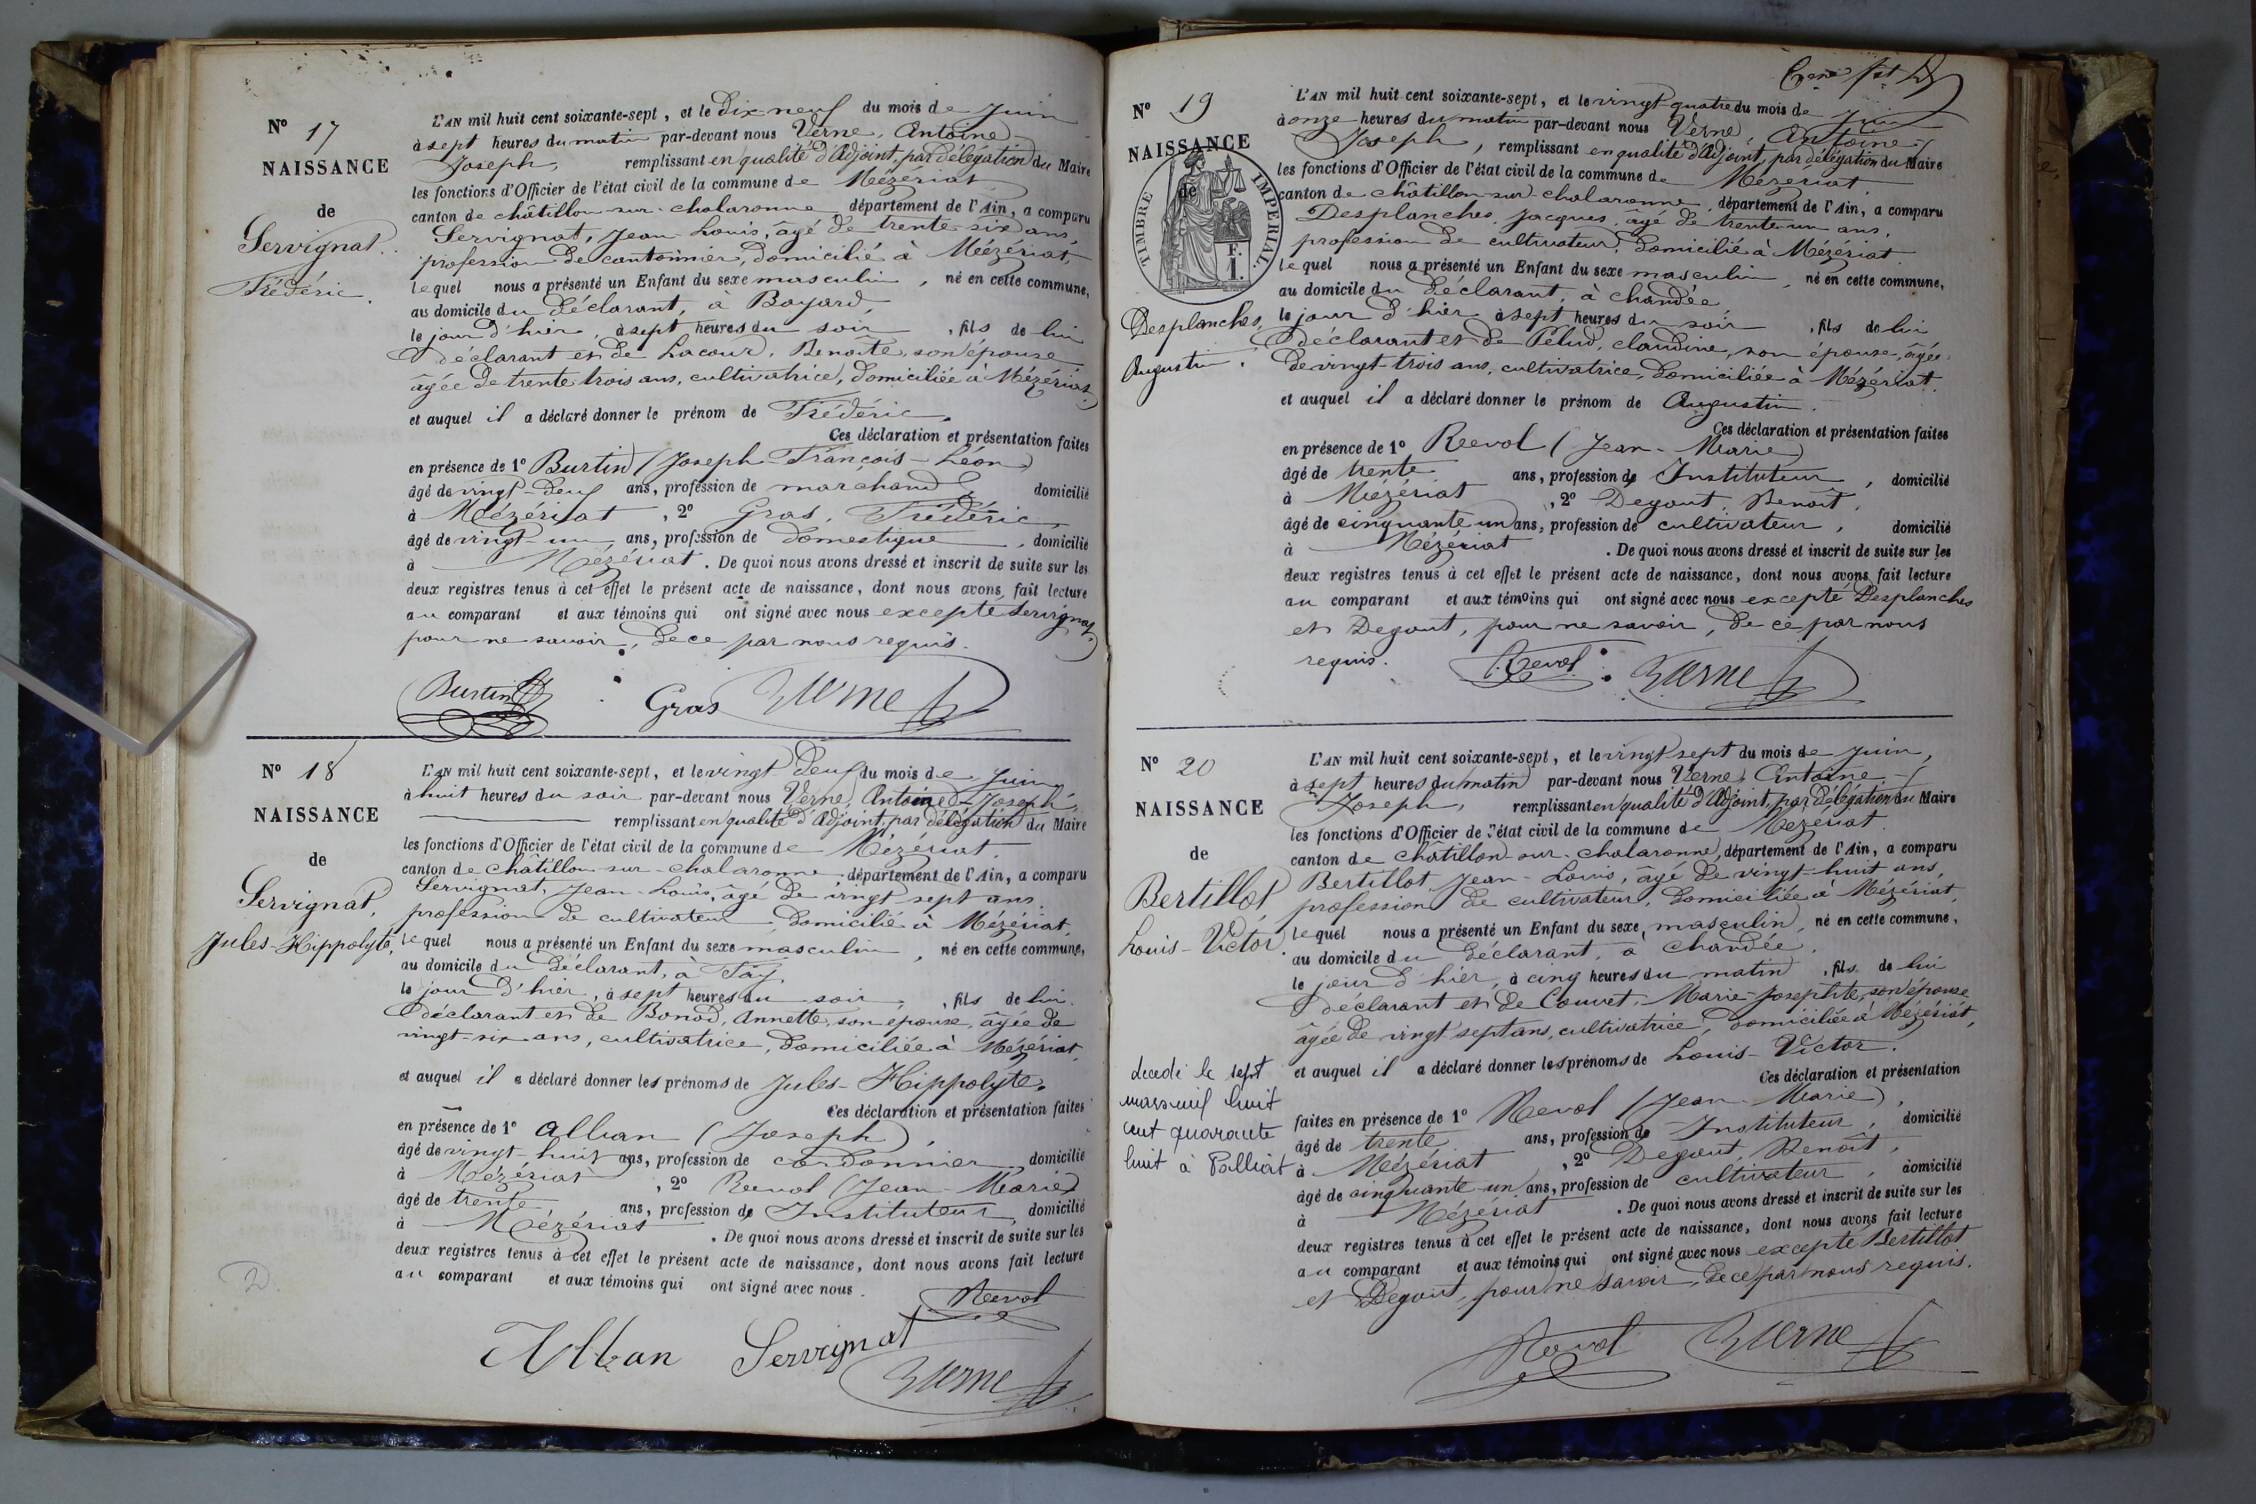 N° 17
NAISSANCE
de
Servignat
Frédéric.
L'AN mil huit cent soixante-sept, et le Dix neuf du mois de Juin
à sept heures du matin par-devant nous Verne, Antoine
Joseph, remplissant en qualité d'Adjoint, par délégation du Maire
les fonctions d'Officier de l'état civil de la commune de Mézériat
canton de châtillon-sur-chalaronne département de l'Ain, a comparu
Servignat, Jean-Louis, âgé de trente six ans,
profession de cantonnier, domicilié à Mézériat,
lequel nous a présenté un Enfant du sexe masculin, né en cette commune,
au domicile du déclarant, à Bayard,
le jour d'hier, à sept heures du soir, fils de lui
déclarant et de Lacour, Benoîte, son épouse
âgée de trente trois ans, cultivatrice, domiciliée à Mézériat
et auquel il a déclaré donner le prénom de Frédéric.
Ces déclaration et présentation faites
en présence de 1° Burtin (Joseph-François-Léon)
âgé de vingt-deux ans, profession de marchand domicilié
à Mézériat, 2° Gras, Frédéric,
âgé de vingt-un ans, profession de domestique, domicilié
à Mézériat. De quoi nous avons dressé et inscrit de suite sur les
deux registres tenus à cet effet le présent acte de naissance, dont nous avons fait lecture
au comparant et aux témoins qui ont signé avec nous excepté Servignat,
pour ne savoir, de ce par nous requis.
Burtin Gras Verne
N° 18
NAISSANCE
de
Servignat,
Jules-Hippolyte,
L'AN mil huit cent soixante-sept, et le vingt deux du mois de Juin
à huit heures du soir par-devant nous Verne, Antoine-Joseph,
remplissant en qualité d'Adjoint, par délégation du Maire
les fonctions d'Officier de l'état civil de la commune de Mézériat.
canton de châtillon-sur-chalaronne département de l'Ain, a comparu
Servignat, Jean-Louis, âgé de vingt sept ans,
profession de cultivateur domicilié à Mézériat,
lequel nous a présenté un Enfant du sexe masculin, né en cette commune,
au domicile du déclarant, à Fay,
le jour d'hier, à sept heures du soir, fils de lui
déclarant et de Bonod, Annette, son épouse, âgée de
vingt-six ans, cultivatrice, domiciliée à Mézériat,
et auquel il a déclaré donner les prénoms de Jules-Hippolyte.
Ces déclaration et présentation faites
en présence de 1° Alban (Joseph),
âgé de vingt-huit ans, profession de cordonnier domicilié
à Mézériat, 2° Revol (Jean-Marie)
âgé de trente ans, profession de Instituteur, domicilié
à Mézériat. De quoi nous avons dressé et inscrit de suite sur les
deux registres tenus à cet effet le présent acte de naissance, dont nous avons fait lecture
au comparant et aux témoins qui ont signé avec nous.
Revol
Alban Servignat
Verne
N° 19
NAISSANCE
de
TIMBRE IMPERIAL.
F.
1.
Desplanches,
Augustin.
L'AN mil huit cent soixante-sept, et le vingt quatre du mois de Juin
à onze heures du matin par-devant nous Verne, Antoine
Joseph, remplissant en qualité d'Adjoint, par délégation du Maire
les fonctions d'Officier de l'état civil de la commune de Mézériat.
canton de châtillon-sur-chalaronne, département de l'Ain, a comparu
Desplanches, Jacques, âgé de trente-un ans,
profession de cultivateur, domicilié à Mézériat
lequel nous a présenté un Enfant du sexe masculin, né en cette commune,
au domicile du déclarant, à chandée,
le jour d'hier à sept heures du soir, fils de lui
déclarant et de Pélud, claudine, son épouse, âgée
de vingt-trois ans, cultivatrice, domiciliée à Mézériat.
et auquel il a déclaré donner le prénom de Augustin.
Ces déclaration et présentation faites
en présence de 1° Revol (Jean-Marie)
âgé de trente ans, profession de Instituteur, domicilié
à Mézériat, 2° Degout, Benoît,
âgé de cinquante un ans, profession de cultivateur, domicilié
à Mézériat. De quoi nous avons dressé et inscrit de suite sur les
deux registres tenus à cet effet le présent acte de naissance, dont nous avons fait lecture
au comparant et aux témoins qui ont signé avec nous excepté Desplanches
et Degout, pour ne savoir, de ce par nous
requis. Revol Verne
N° 20
NAISSANCE
de
Bertillot
Louis-Victor.
decedé le sept
mars mil huit
cent quarante
huit à Polliat
L'AN mil huit cent soixante-sept, et le vingt sept du mois de Juin,
à sept heures du matin par-devant nous Verne, Antoine
Joseph, remplissant en qualité d'Adjoint, par délégation du Maire
les fonctions d'Officier de l'état civil de la commune de Mézériat.
canton de châtillon-sur-chalaronne, département de l'Ain, a comparu
Bertillot Jean-Louis, âgé de vingt-huit ans,
profession de cultivateur, domiciliée à Mézériat,
lequel nous a présenté un Enfant du sexe masculin, né en cette commune,
au domicile du déclarant, à chandée,
le jour d'hier, à cinq heures du matin, fils de lui
déclarant et de Couvet, Marie-Josephte, son épouse
âgée de vingt sept ans, cultivatrice, domiciliée à Mézériat,
et auquel il a déclaré donner les prénoms de Louis-Victor.
Ces déclaration et présentation
faites en présence de 1° Revol (Jean-Marie),
âgé de trente ans, profession de Instituteur, domicilié
à Mézériat, 2° Degout, Benoît,
âgé de cinquante-un ans, profession de cultivateur, domicilié
à Mézériat. De quoi nous avons dressé et inscrit de suite sur les
deux registres tenus à cet effet le présent acte de naissance, dont nous avons fait lecture
au comparant et aux témoins qui ont signé avec nous excepté Bertillot
et Degout, pour ne savoir, de ce par nous requis.
Revol Verne